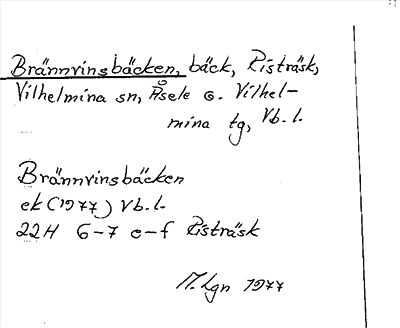 Brännvinsbäcken, bäck, Risträsk,
Vilhelmina sn, Åsele o. Vilhel-
mina tg, Vb.l.
Brännvinsbäcken
ek (1977) Vb.l.
22H 6-7 e-f Risträsk
M.Lgn 1977